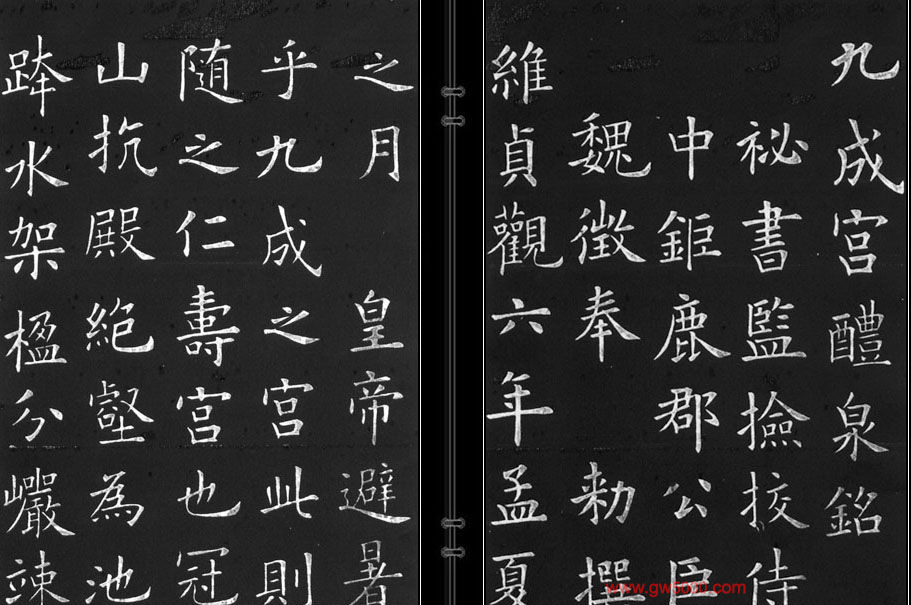 九成宮醴泉銘
祕書監撿挍侍
中鉅鹿郡公臣
魏徵奉勑撰
維貞觀六年孟夏
之月皇帝避暑
乎九成之宮此則
随之仁壽宮也冠
山抗殿絕壑為池
跨水架楹分巖竦
www.gw5000.com